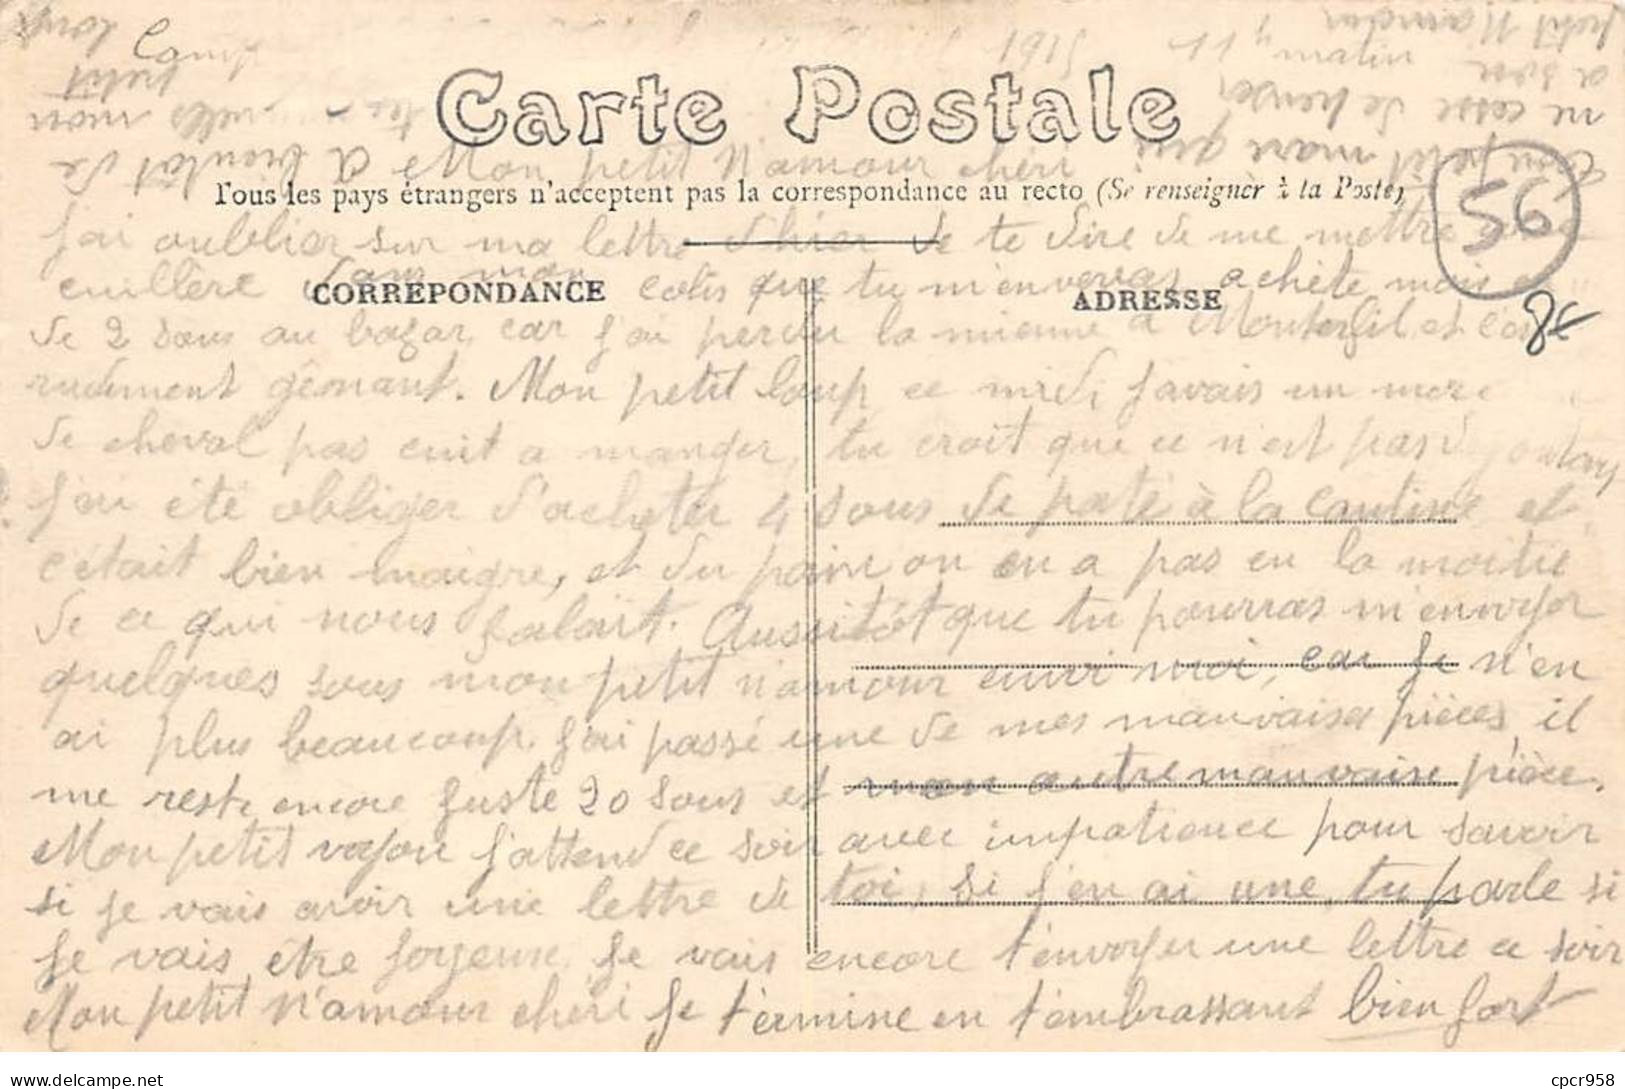 Carte Postale
Mon petit N'amour chéri
Tous les pays étrangers n'acceptent pas la correspondance au recto (Se renseigner à la Poste)
56
J'ai oublier sur ma lettre d'hier de te dire de me mettre une
cuillère dans mon colis que tu m'enverras, achète mais
CORREPONDANCE
ADRESSE
8€
de 2 sous au bazar, car j'ai perdu la mienne a Monterfil et c'est
rudement gênant. Mon petit loup ce midi j'avais un morc
de cheval pas cuit a manger, tu croit que ce n'est pas
j'ai été obliger d'acheter 4 sous de paté à la cantine et
c'était bien maigre, et du pain on en a pas eu la moitié
de ce qui nous falait. Aussitôt que tu pourras m'envoyer
quelques sous mon petit n'amour envoi moi, car je n'en
ai plus beaucoup. J'ai passé une de mes mauvaises pièces, il
me reste encore juste 20 sous et mon autre mauvaise pièce.
Mon petit voyou j'attend ce soir avec impatience pour savoir
si je vais avoir une lettre de toi, si j'en ai une, tu parle si
je vais être joyeuse. Je vais encore t'envoyer une lettre ce soir
Mon petit N'amour chéri je termine en t'embrassant bien fort
A bientôt de
tes nouvelles mon
petit
Ton petit mari qui
ne cesse de penser
a son
petit N'amour
cpcr958